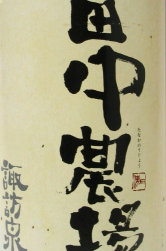 田中農場
諏訪泉